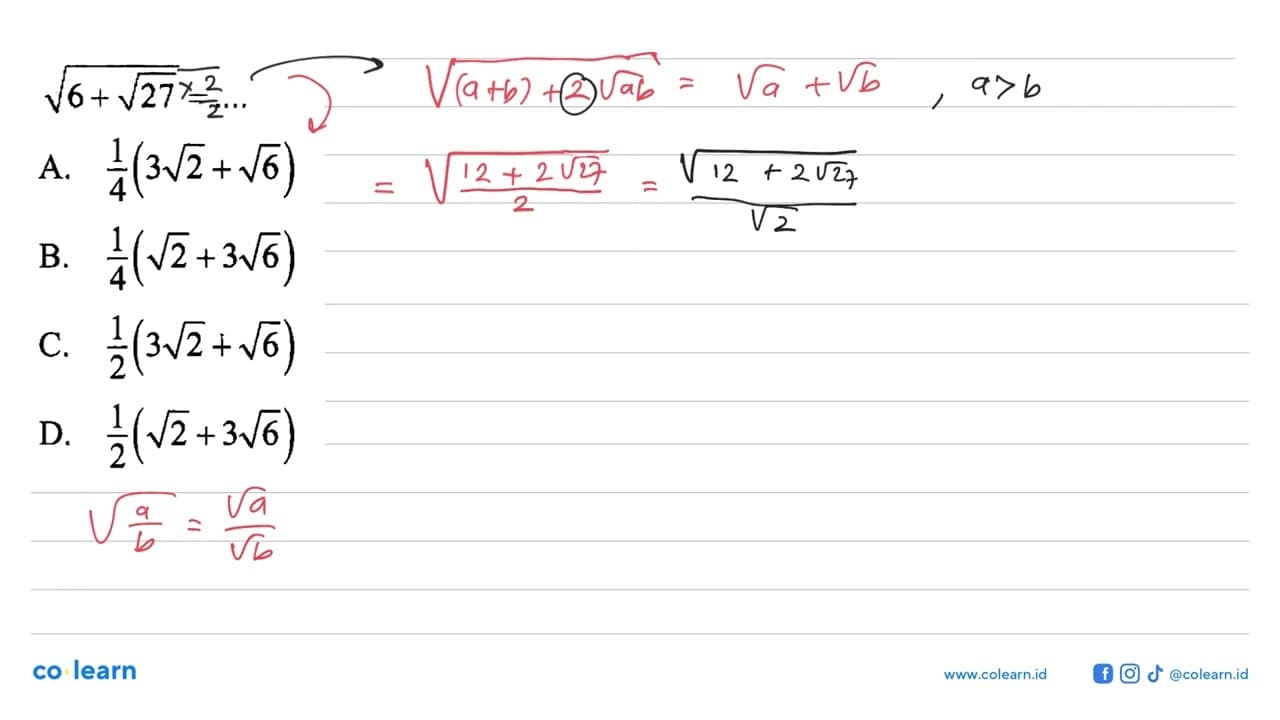 √(6 + √27) × 2/2 = ...
√((a+b) + 2√ab) = √a + √b , a > b
A. 1/4 (3√2 + √6)
= √((12 + 2√27)/2) = √(12 + 2√27)/√2
B. 1/4 (√2 + 3√6)
C. 1/2 (3√2 + √6)
D. 1/2 (√2 + 3√6)
√(a/b) = √a/√b
co learn
www.colearn.id @colearn.id